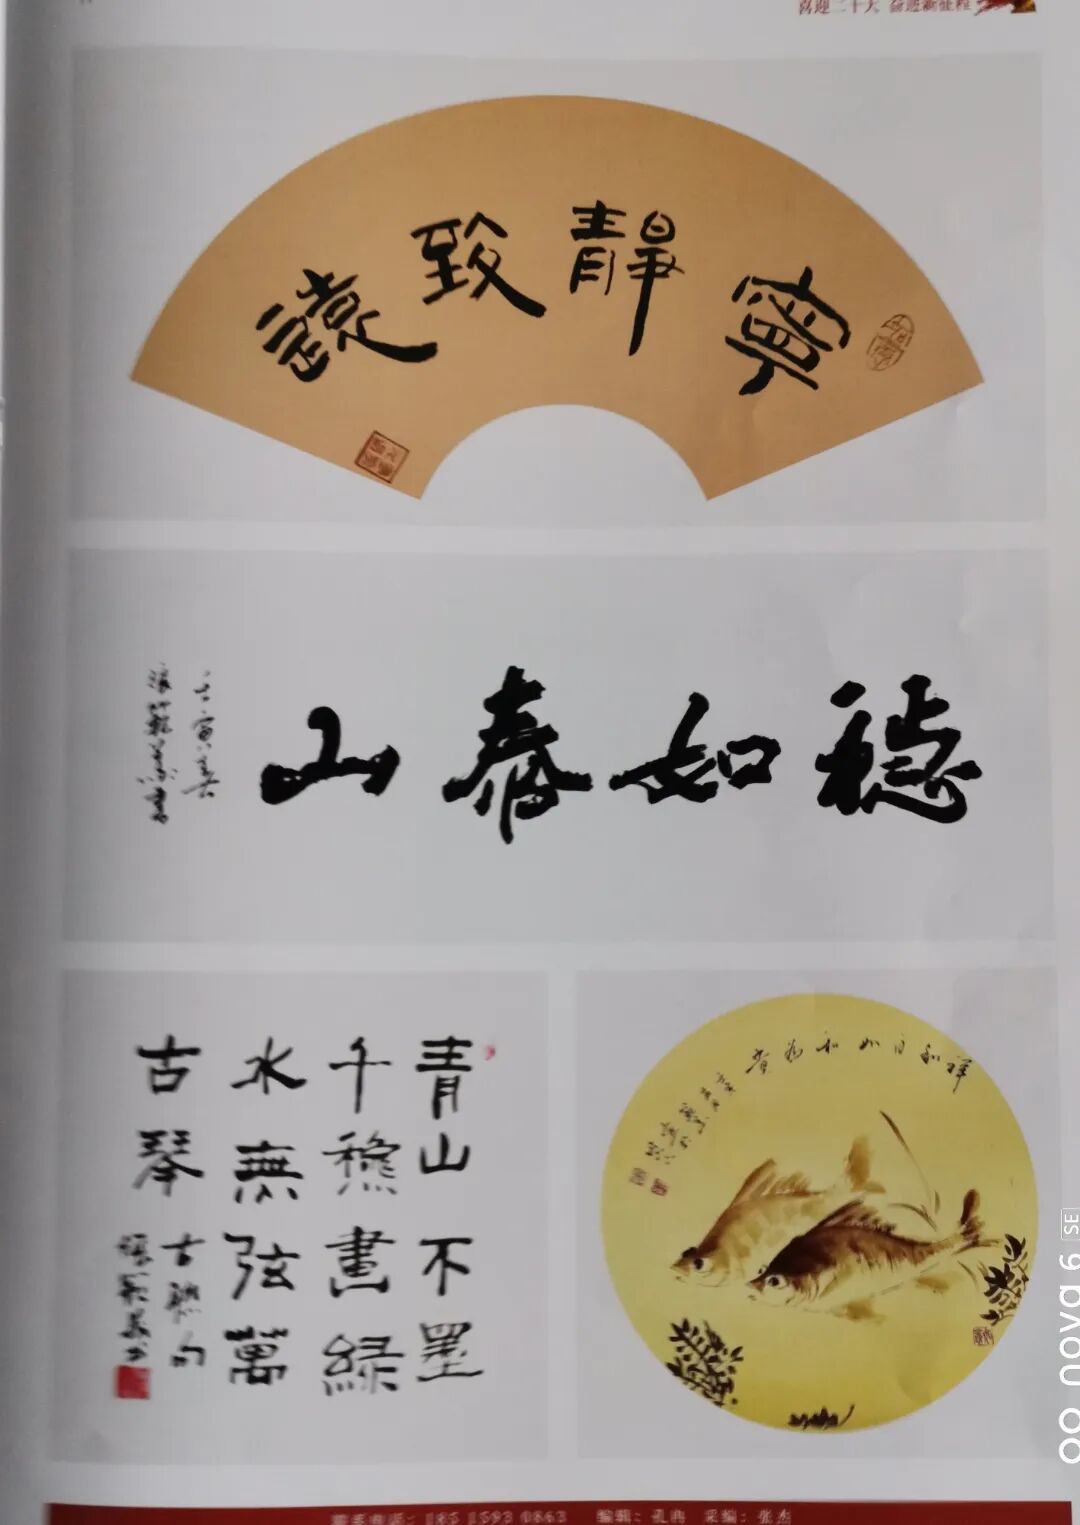 喜迎二十大 奋进新征程
寧靜致遠
穩如泰山
壬寅春
青山不墨
千穐畫綠
水無弦萬
古琴
古聯句
祥和自如和為貴
联系电话：185 1593 0863 编辑：孔冉 采编：张杰
nova 6 SE